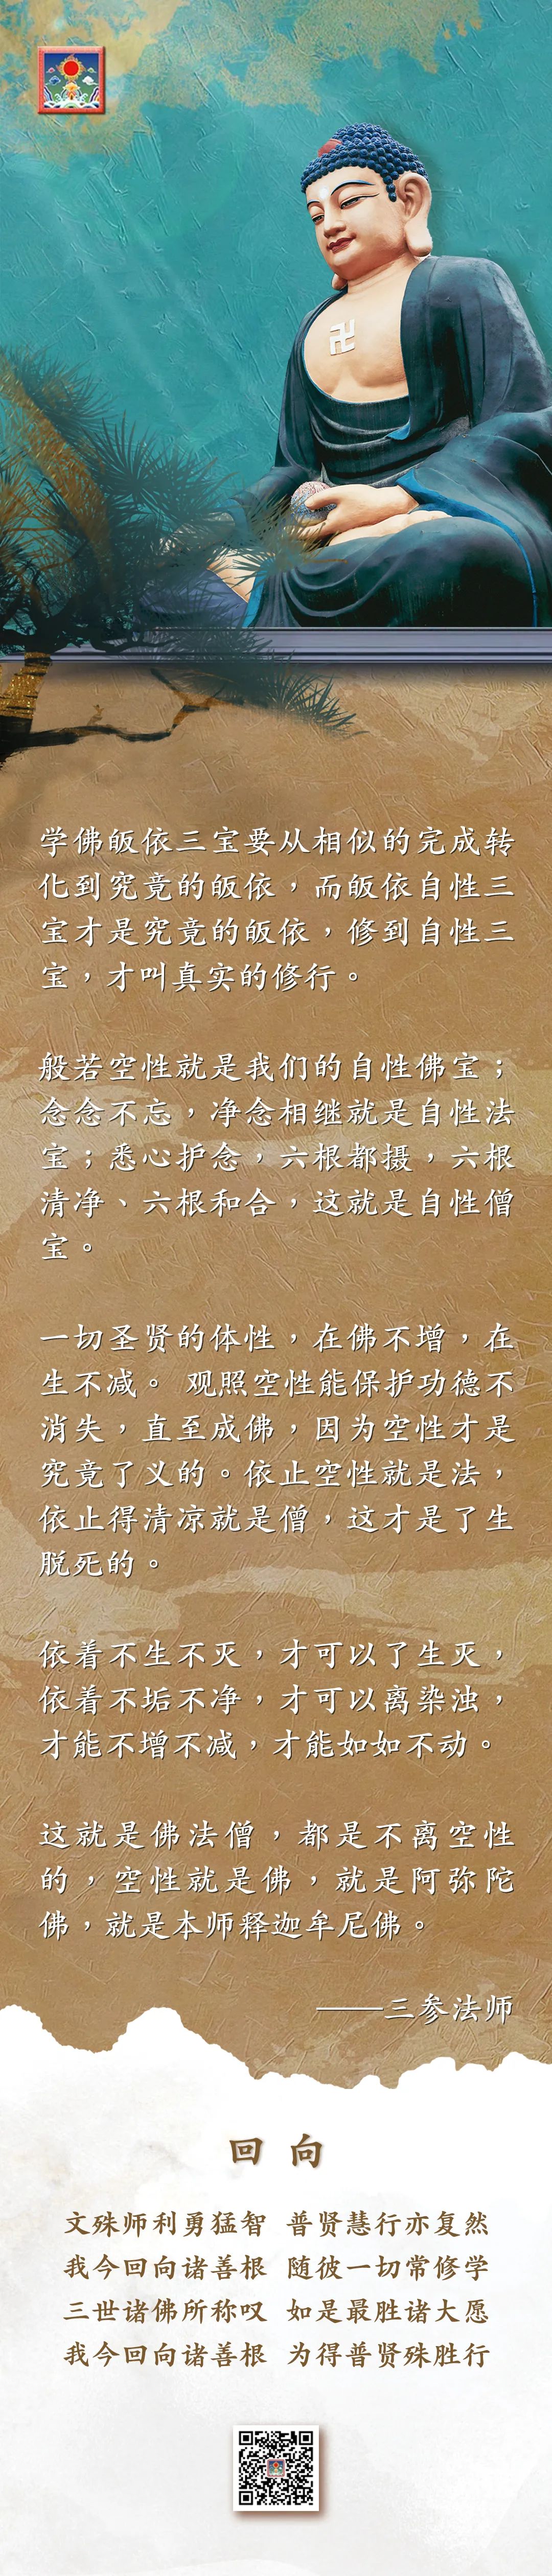 卍
学佛皈依三宝要从相似的完成转
化到究竟的皈依，而皈依自性三
宝才是究竟的皈依，修到自性三
宝，才叫真实的修行。
般若空性就是我们的自性佛宝；
念念不忘，净念相继就是自性法
宝；悉心护念，六根都摄，六根
清净、六根和合，这就是自性僧
宝。
一切圣贤的体性，在佛不增，在
生不减。 观照空性能保护功德不
消失，直至成佛，因为空性才是
究竟了义的。依止空性就是法，
依止得清凉就是僧，这才是了生
脱死的。
依着不生不灭，才可以了生灭，
依着不垢不净，才可以离染浊，
才能不增不减，才能如如不动。
这就是佛法僧，都是不离空性
的，空性就是佛，就是阿弥陀
佛，就是本师释迦牟尼佛。
——三参法师
回 向
文殊师利勇猛智 普贤慧行亦复然
我今回向诸善根 随彼一切常修学
三世诸佛所称叹 如是最胜诸大愿
我今回向诸善根 为得普贤殊胜行